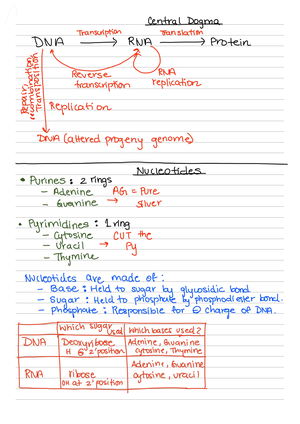 Central Dogma
Transcription Translation
DNA RNA Protein
Reverse transcription
RNA replication
Repair, recombination, Transposition
Replication
DNA (altered progeny genome)
Nucleotides
• Purines : 2 rings
– Adenine AG = Pure
– Guanine → Silver
• Pyrimidines : 1 ring
– Cytosine CUT the
– Uracil → Py
– Thymine
Nucleotides are made of :
– Base : Held to sugar by glycosidic bond
– Sugar : Held to phosphate by phosphodiester bond.
– Phosphate : Responsible for ⊖ charge of DNA.
Which sugar used Which bases used?
DNA Deoxyribose Adenine, Guanine
H @ 2' position cytosine, Thymine
RNA ribose Adenine, Guanine
OH at 2' position cytosine, uracil